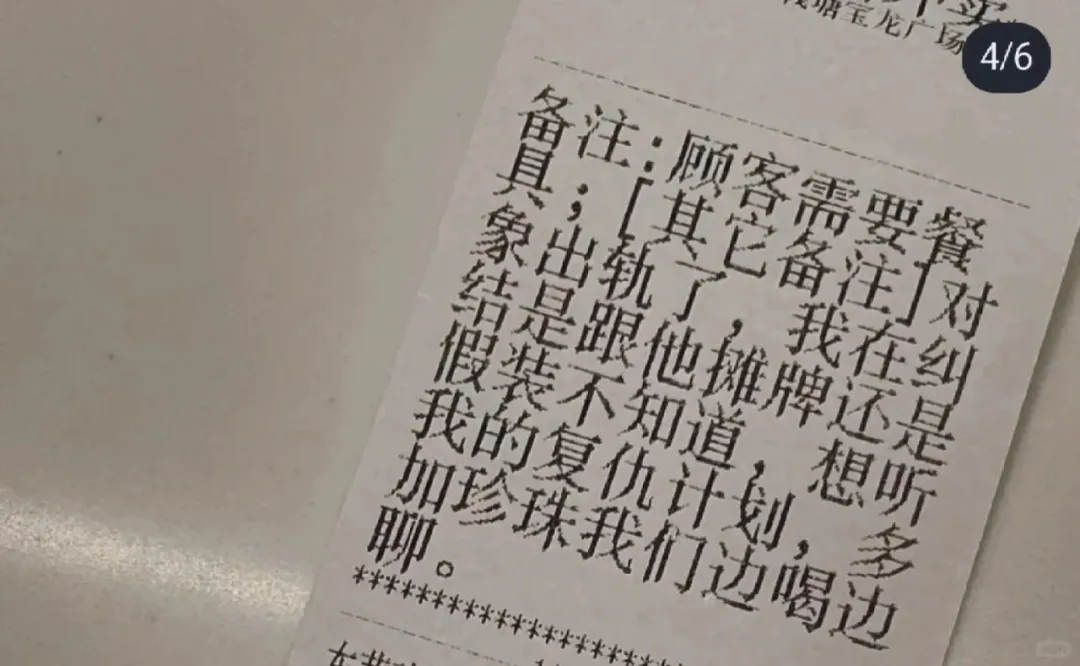 钱塘宝龙广场
4/6
备注：顾客需要餐
具；[其它备注]对
象出轨了，我在纠
结是跟他摊牌还是
假装不知道，想听
我的复仇计划，多
加珍珠我们边喝边
聊。
**************************